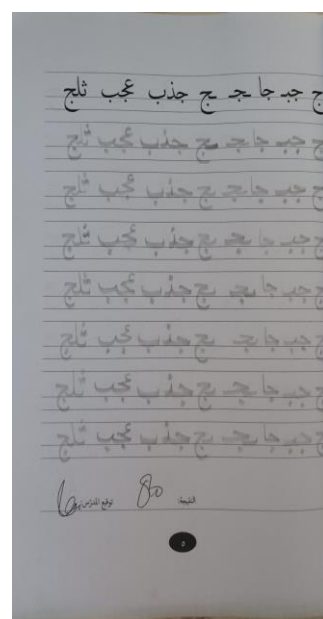 ج جبـ جا ـجـ ـج جذب عجب ثلج
ج جبـ جا ـجـ ـج جذب عجب ثلج
ج جبـ جا ـجـ ـج جذب عجب ثلج
ج جبـ جا ـجـ ـج جذب عجب ثلج
ج جبـ جا ـجـ ـج جذب عجب ثلج
ج جبـ جا ـجـ ـج جذب عجب ثلج
ج جبـ جا ـجـ ـج جذب عجب ثلج
ج جبـ جا ـجـ ـج جذب عجب ثلج
النتيجة: 80 توقيع المدرس:
٥